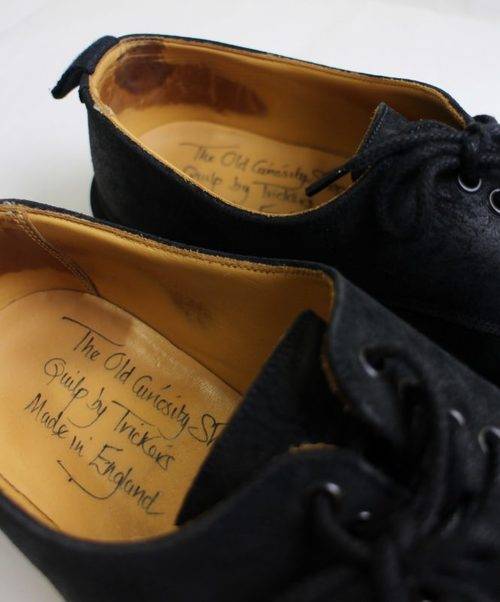 The Old Curiosity S
Quilp by Tricker's
The Old Curiosity Sh
Quilp by Tricker's
Made in England